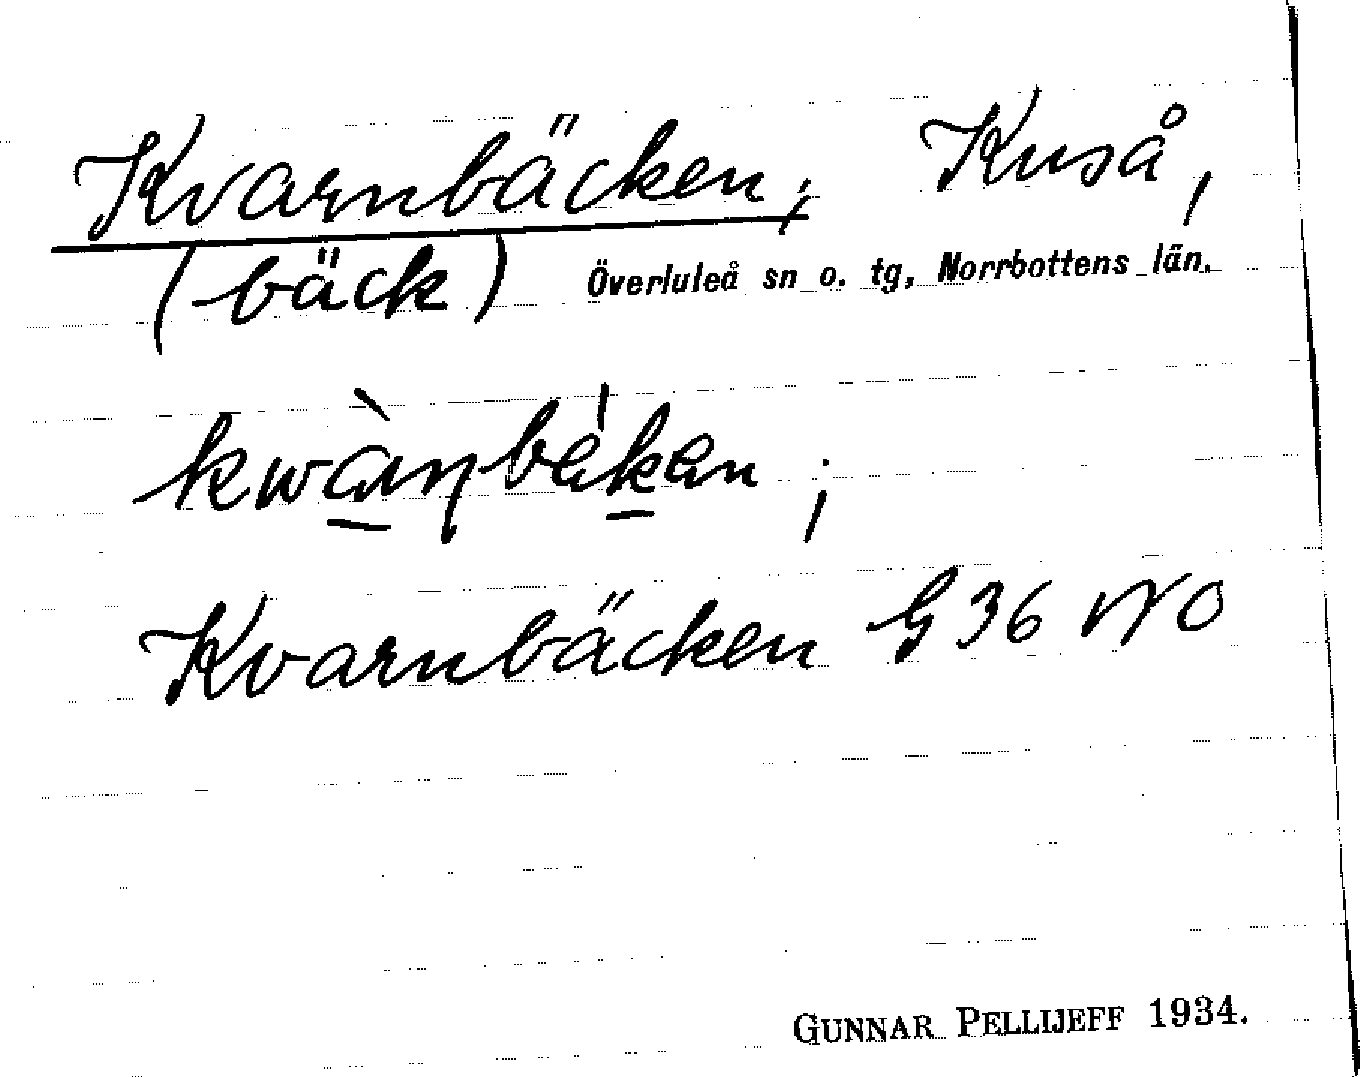 Kvarnbäcken, Kuså,
(bäck) Överluleå sn o. tg, Norrbottens län.
kwànbékan ;
Kvarnbäcken G 36 NO
GUNNAR PELLIJEFF 1934.